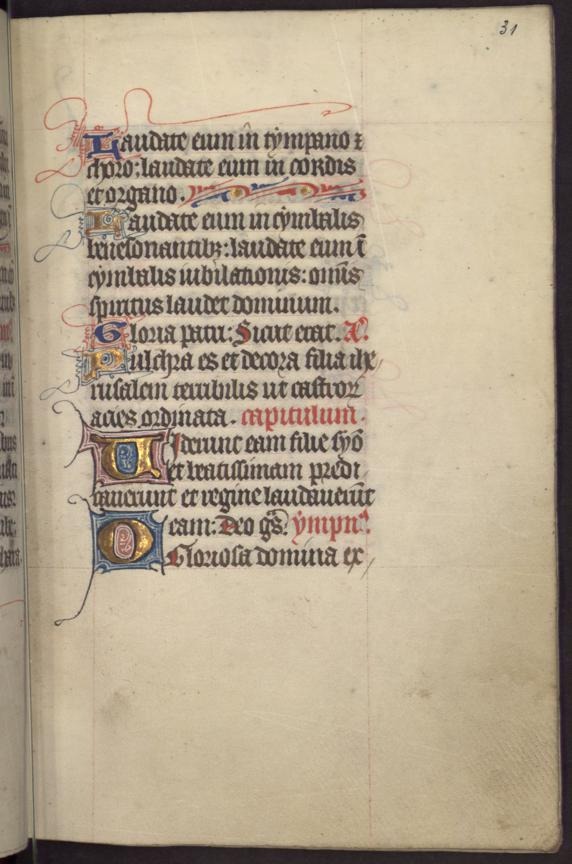 31
Laudate eum in tympano ⁊
choro: laudate eum in cordis
et organo.
Laudate eum in cymbalis
benesonantibꝫ: laudate eum ī
cymbalis iubilationis: omīs
spiritus laudet dominum.
Gloria patri: Sicut erat. A͞.
Pulchra es et decora filia ihe
rusalem terribilis ut castroꝝ
acies ordinata. capitulum.
Uiderunt eam filie syō
et beatissimam predi
cauerunt et regine laudauerūt
eam: Deo gr͞s. ympn͞.
O Gloriosa domina ex